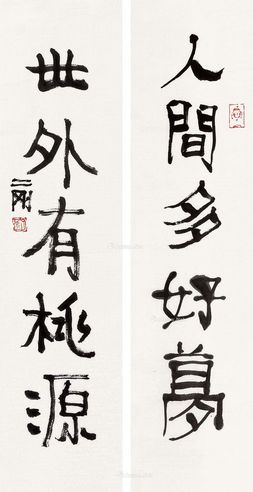 人間多好夢
世外有桃源
二剛